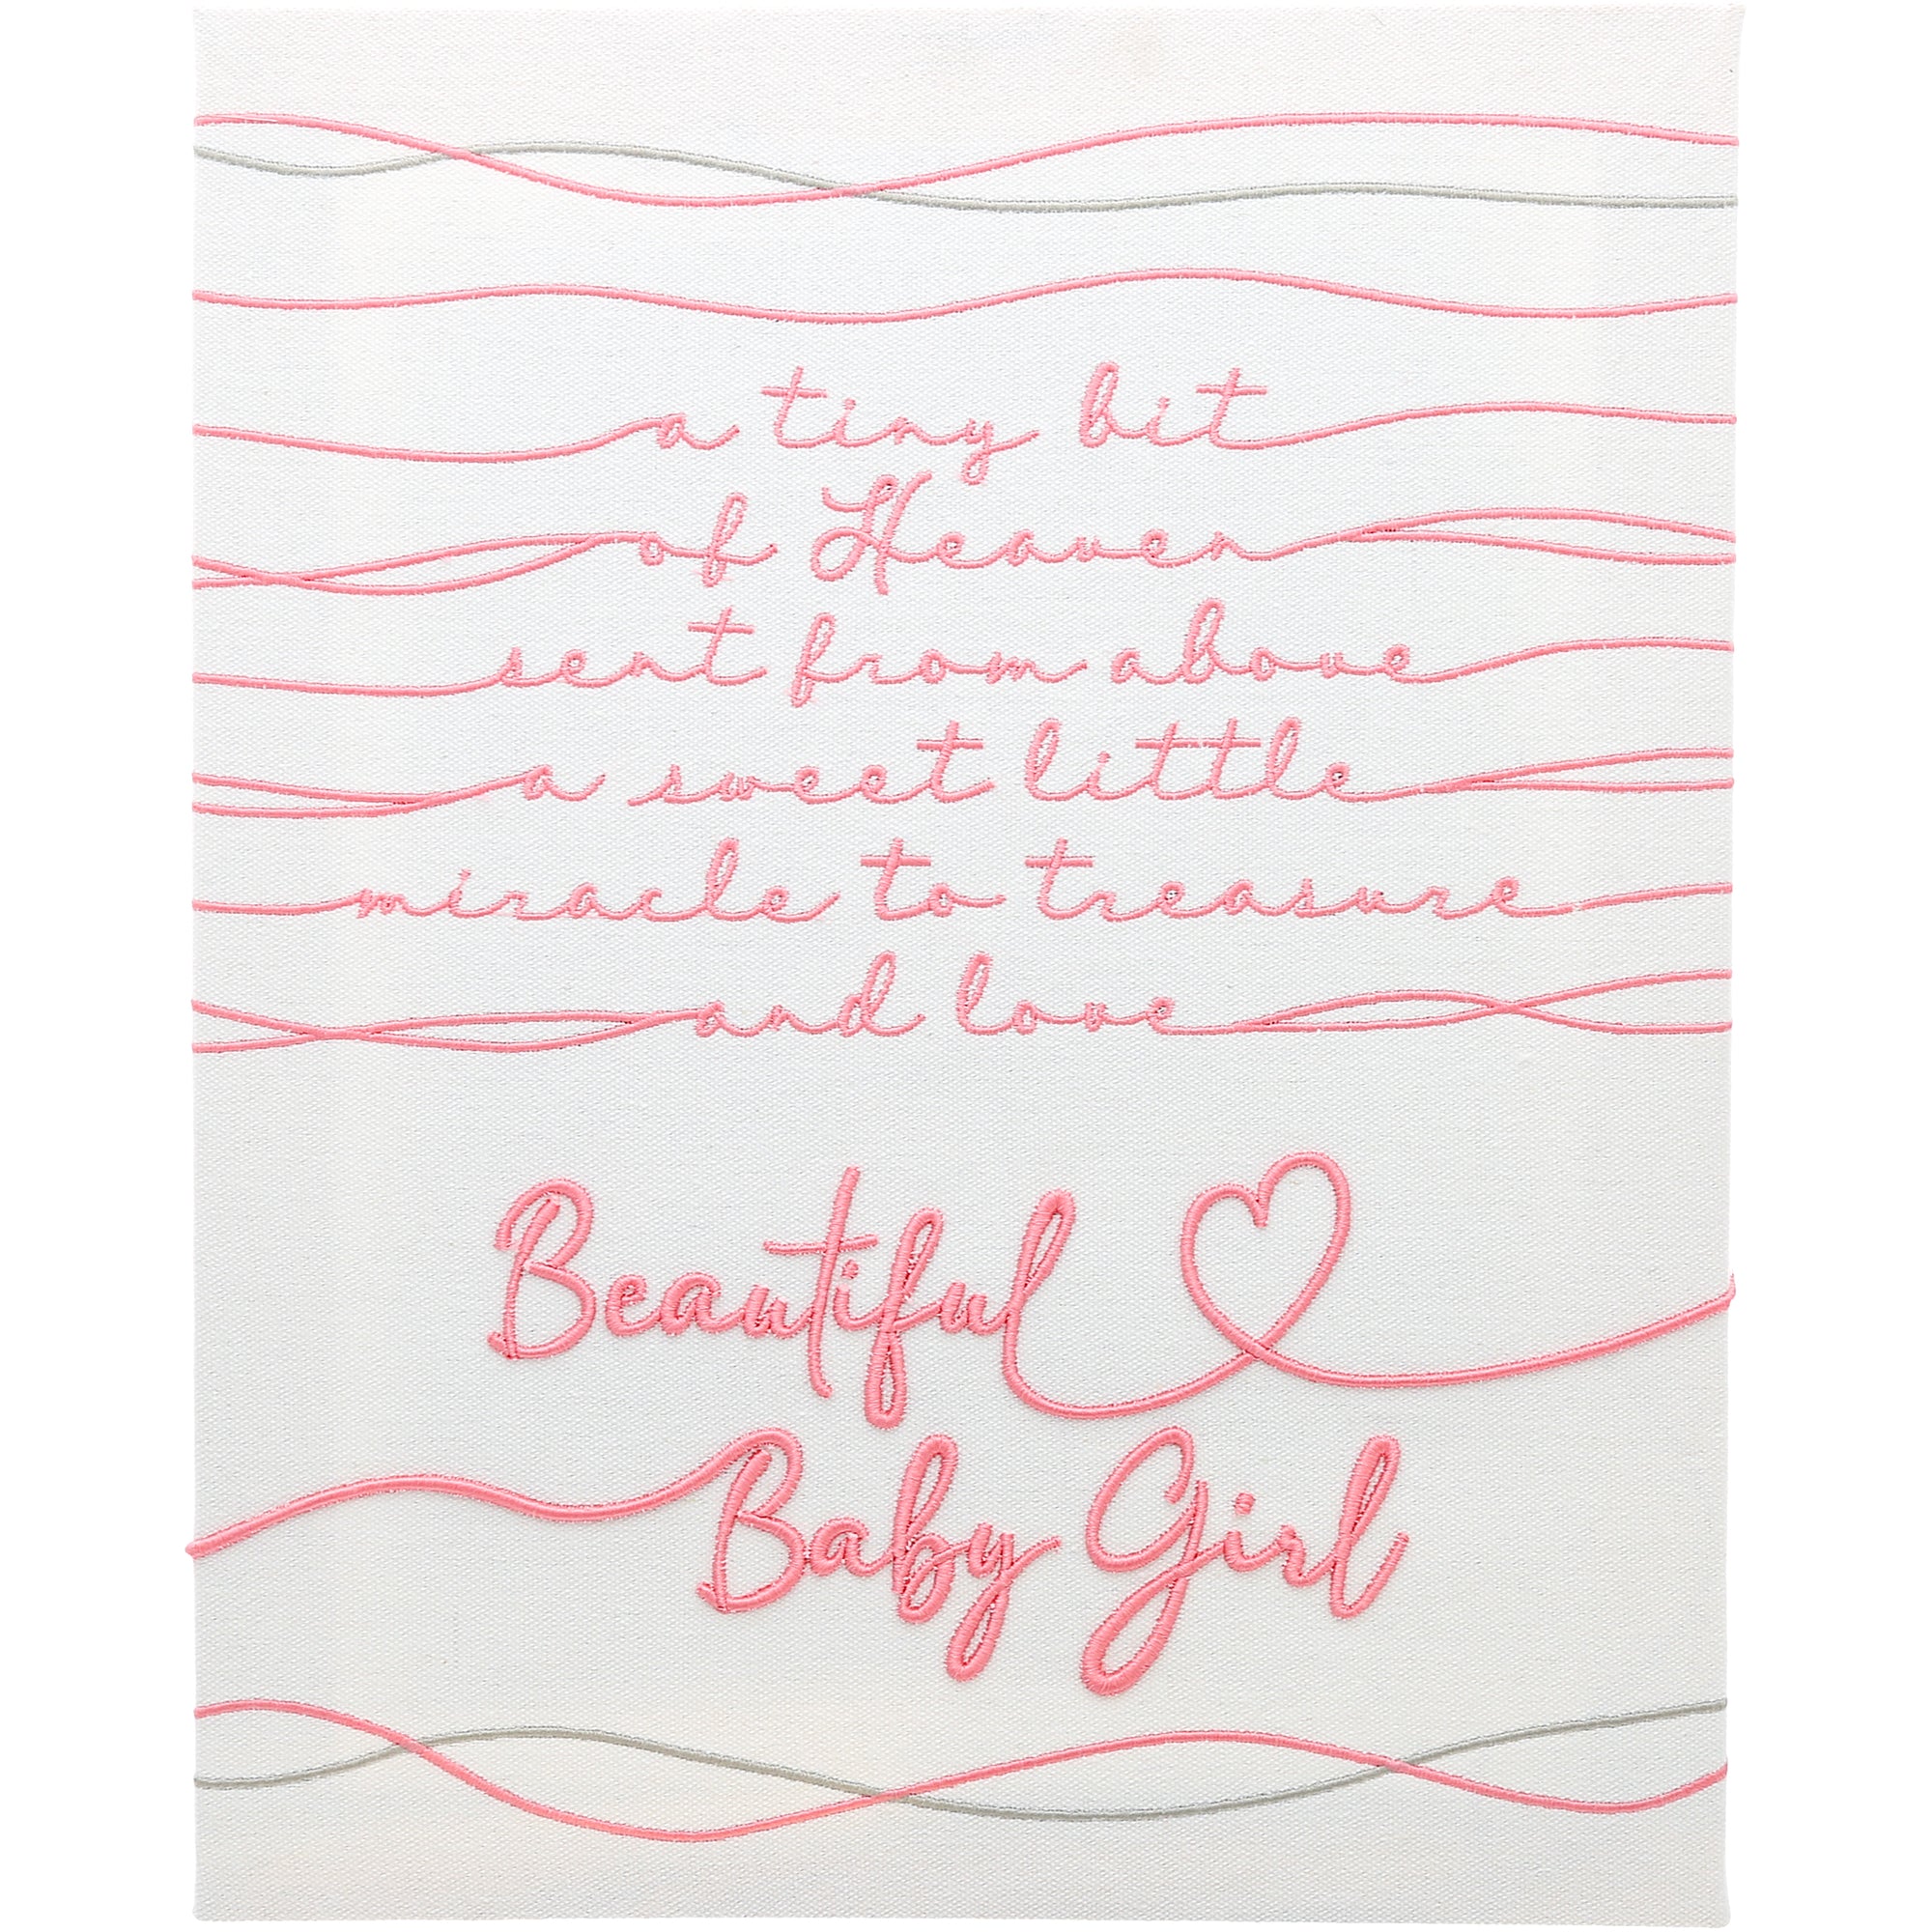 a tiny bit
of Heaven
sent from above
a sweet little
miracle to treasure
and love
Beautiful
Baby Girl